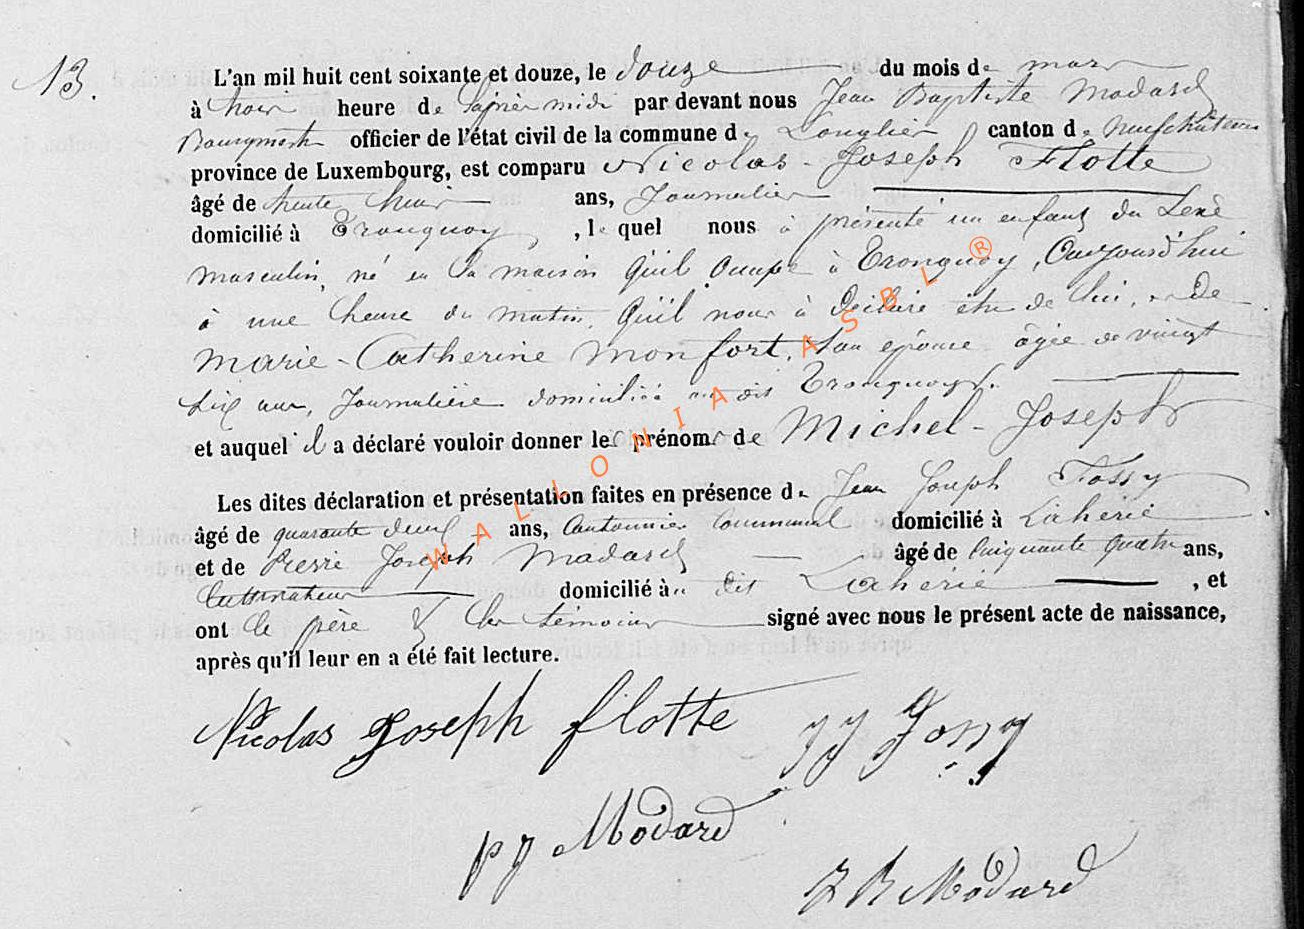 13.
L'an mil huit cent soixante et douze, le douze du mois de mars
à trois heure de l'après midi par devant nous Jean Baptiste Modard
Bourgmestre officier de l'état civil de la commune de Longlier, canton de Neufchâteau
province de Luxembourg, est comparu Nicolas-Joseph Flotte
âgé de trente ans, Journalier
domicilié à Tronquoy, lequel nous à présenté un enfant du sexe
masculin, né en la maison qu'il occupe à Tronquoy, aujourd'hui
à une heure du matin, qu'il nous à déclaré être de lui, et de
Marie-Catherine Monfort, son épouse âgée de vingt
six ans, Journalière domiciliée au dit Tronquoy.
et auquel il a déclaré vouloir donner les prénoms de Michel-Joseph
Les dites déclaration et présentation faites en présence de Jean Joseph
âgé de quarante deux ans, Cantonnier Communal domicilié à Lahérie
et de Pierre Joseph Modard âgé de Cinquante quatre ans,
Cultivateur domicilié au dit Lahérie, et
ont le père & les témoins signé avec nous le présent acte de naissance,
après qu'il leur en a été fait lecture.
Nicolas Joseph flotte JJ
pj Modard
J B Modard
WALLONIA ASBL ®